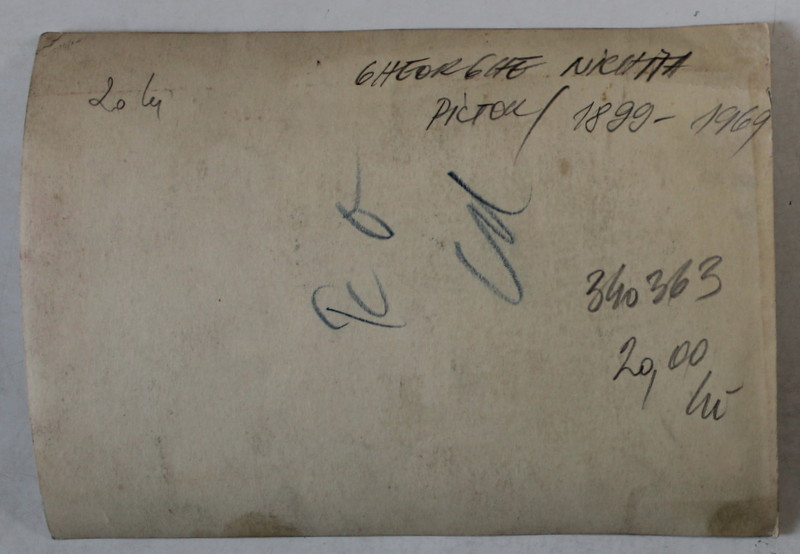 GHEORGHE NICHITA
20 lei
PICTOR / 1899 - 1969
340363
20,00
lei